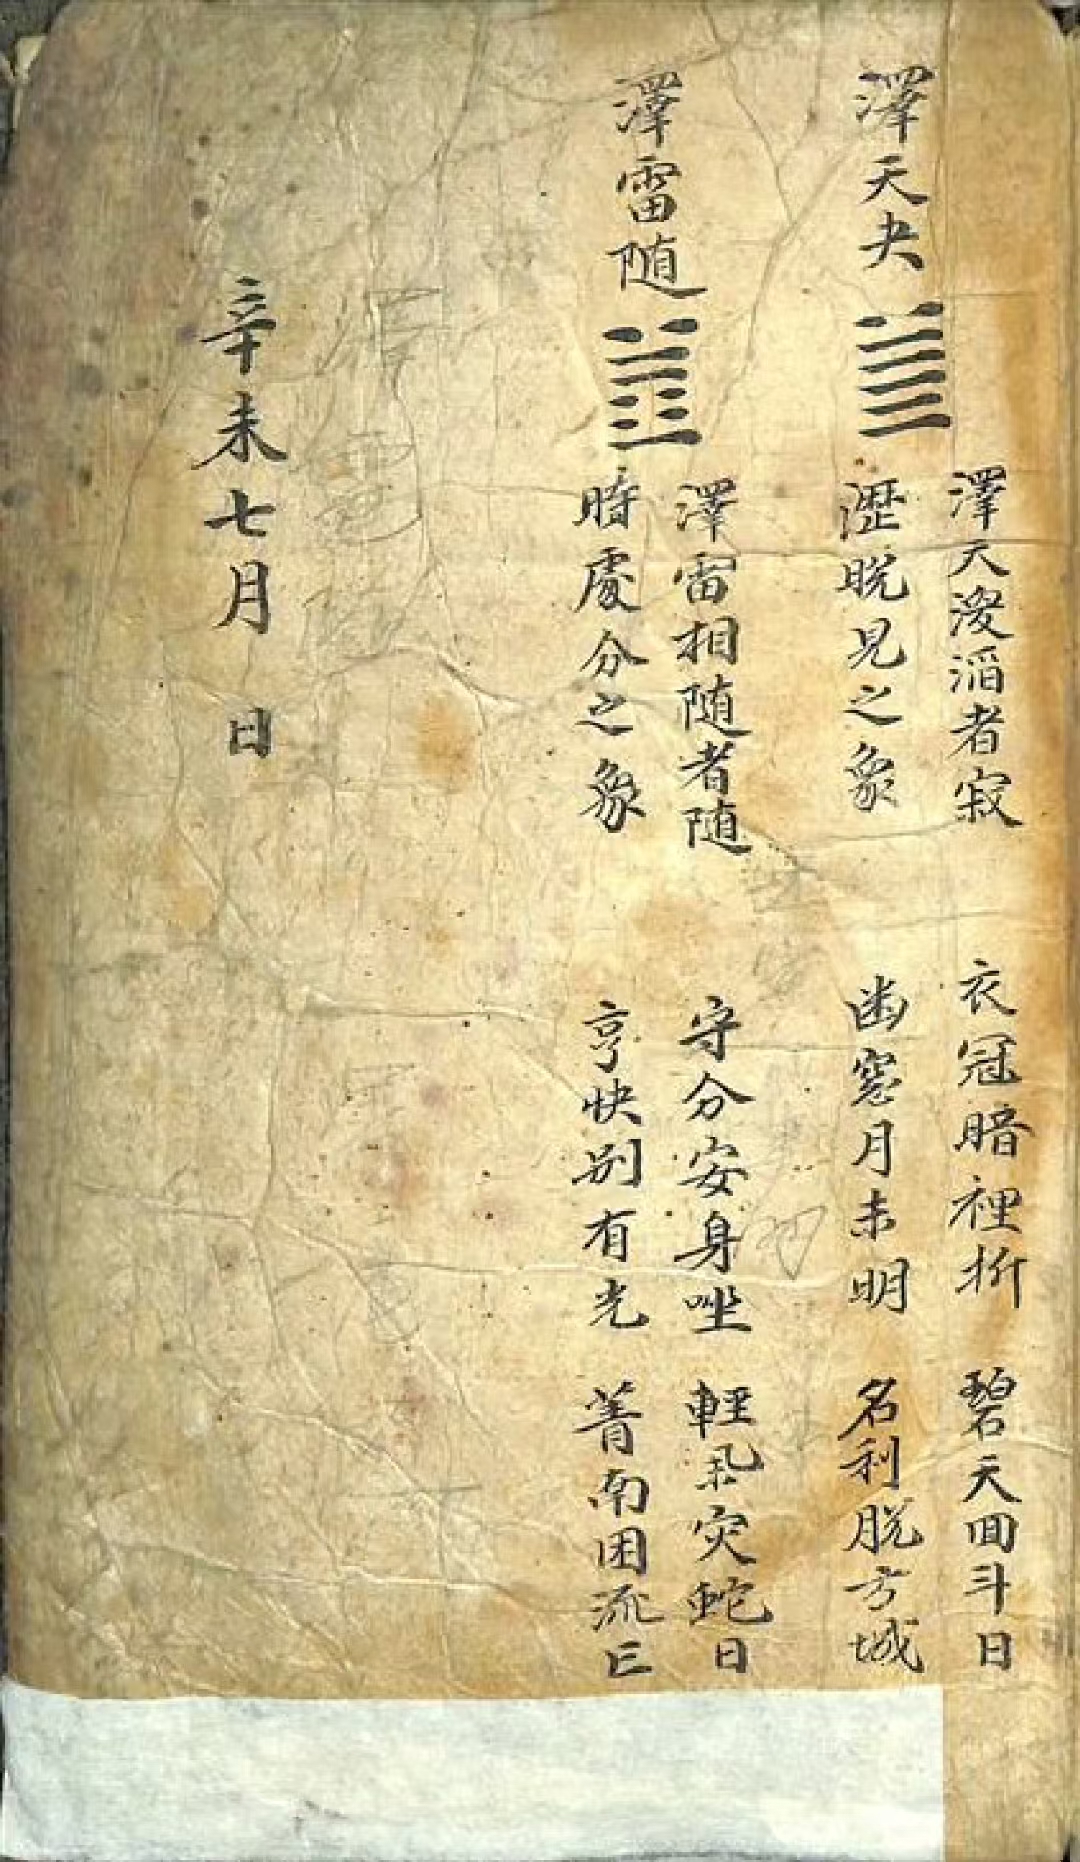 澤天夬
澤天浚滔者寂
瀝脫見之象
衣冠暗裡折
幽窓月未明
碧天回斗日
名利脫方城
澤雷随
澤雷相随者随
時處分之象
守分安身坐
亨快别有光
輕災蛇日
菁南困流
辛未七月 日